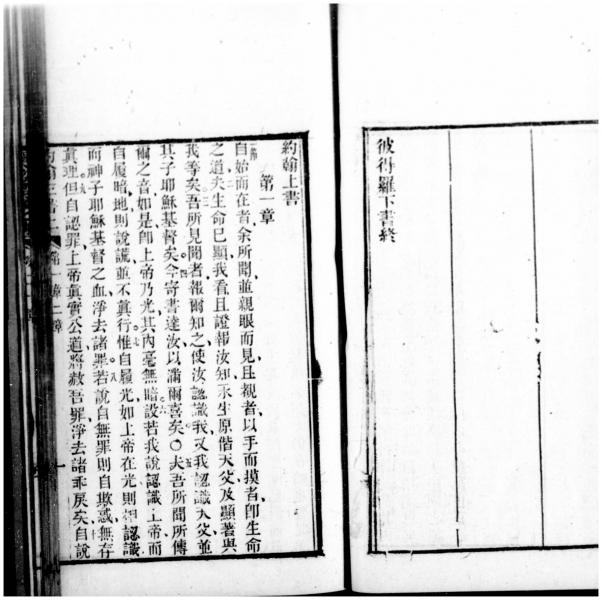 彼得羅下書終
約翰上書
第一章
自始而在者余所聞並親眼而見且視者以手而摸者卽生命
之道夫生命已顯我看且證報汝知永生原偕天父及顯著與
我等矣吾所見聞者報爾知之使汝認識我又我認識天父並
其子耶穌基督矣今寄書達汝以滿爾喜矣〇夫吾所聞所傳
爾之音如是卽上帝乃光其內毫無暗設若我說認識上帝而
自履暗地則說謊並不眞行惟自履光如上帝在光則相認識
而神子耶穌基督之血淨去諸罪若說自無罪則自欺惑無存
眞理但自認罪上帝眞實公道將赦吾罪淨去諸乖戾矣自說
第一章二章